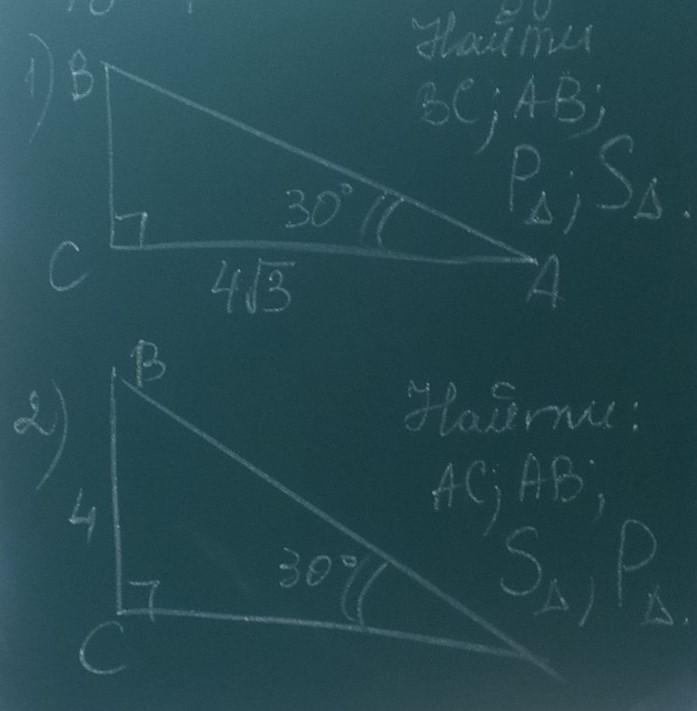 1) B
Найти
BC; AB;
P△; S△.
30°
C
4√3
A
2)
B
Найти:
AC; AB;
4
S△, P△.
30°
C